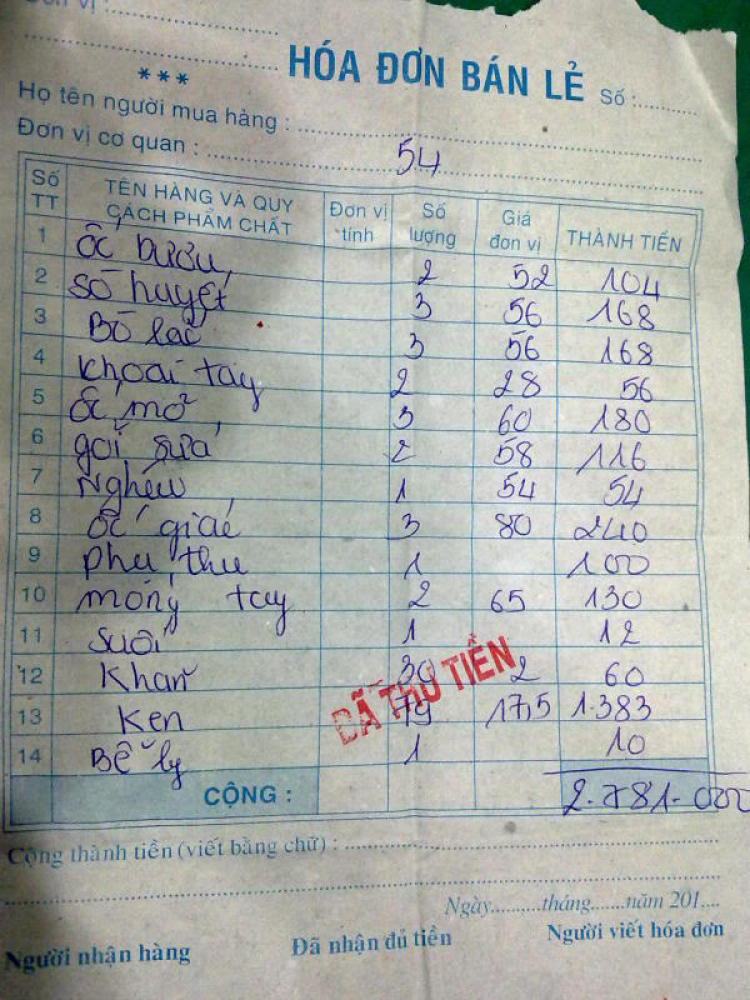 Đơn vị :
HÓA ĐƠN BÁN LẺ
***
Số :
Họ tên người mua hàng :
Đơn vị cơ quan :
54
Số TT TÊN HÀNG VÀ QUY CÁCH PHẨM CHẤT Đơn vị tính Số lượng Giá đơn vị THÀNH TIỀN
1 ốc bươu 2 52 104
2 sò huyết 3 56 168
3 Bò lắc 3 56 168
4 khoai tây 2 28 56
5 ốc mỡ 3 60 180
6 gỏi sứa 2 58 116
7 Nghêu 1 54 54
8 ốc giác 3 80 240
9 phụ thu 1 100
10 móng tay 2 65 130
11 suối 1 12
12 Khăn 30 2 60
13 Ken 79 17,5 1.383
14 Bể ly 1 10
ĐÃ THU TIỀN
CỘNG : 2.781.000
Cộng thành tiền (viết bằng chữ) :
Ngày..........tháng.......năm 201....
Người nhận hàng Đã nhận đủ tiền Người viết hóa đơn